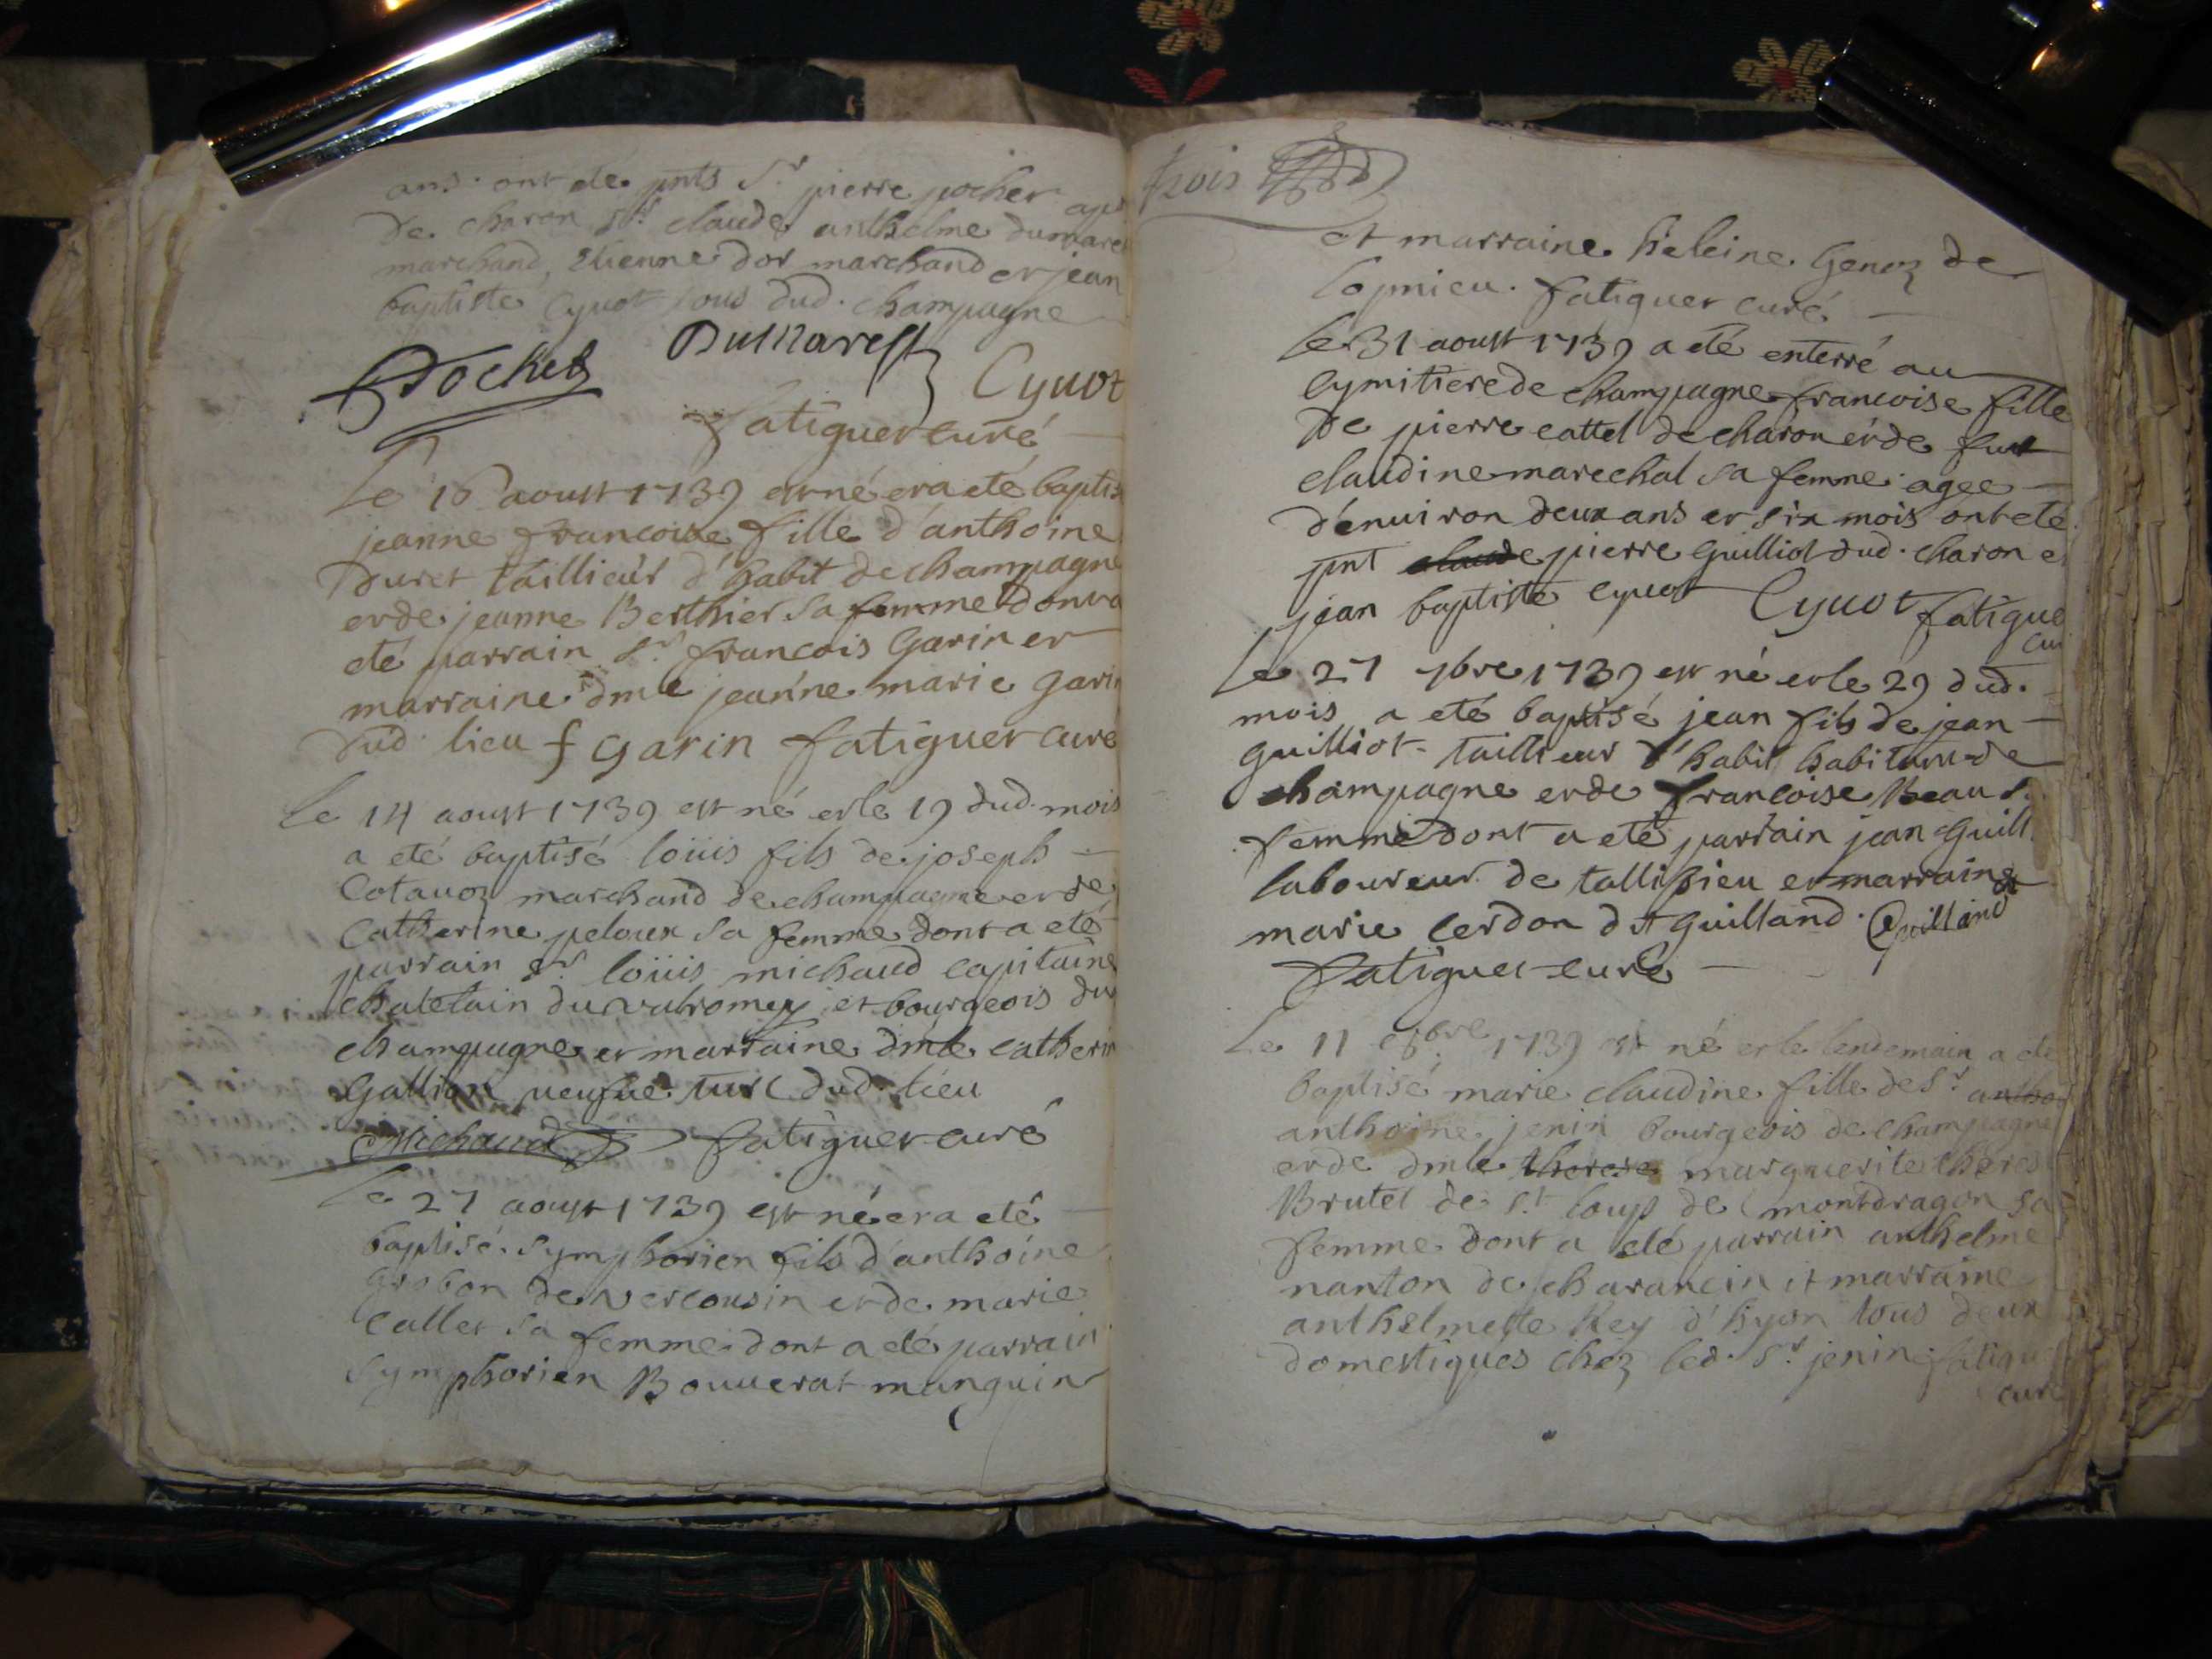 ans. ont ete pnts Sr. pierre pochet
de charon Sr. claude anthelme dumare
marchand, Etienne dor marchand et jean
baptiste Cyuot tous dud. champagne
Pochet Dumarest Cyuot
fatiguet curé
Le 16 aoust 1739 est né et a eté baptis
jeanne francoise fille d'anthoine
Duret taillieur d'habit de champagne
et de jeanne Berthier sa femme dont a
eté parrain Sr. francois Garin et
marraine dmle jeanne marie garin
dud. lieu f Garin fatiguet curé
Le 14 aoust 1739 est né et le 19 dud. mois
a eté baptisé loüis fils de joseph
Cotauoz marchand de champagne et de
Catherine peloux sa femme dont a eté
parrain Sr. loüis michaud capitaine
chatelain du valromey et bourgeois du
champagne et marraine dmle catherin
Gallion dud. lieu
Michaud fatiguet curé
Le 27 aoust 1739 est né et a eté
baptisé symphorien fils d'anthoine
Grobon de vercousin et de marie
Callet sa femme dont a eté parrain
Symphorien Bouuerat manguin
trois
et marraine heleine Genoz de
lopnieu. fatiguet curé
Le 31 aoust 1739 a eté enterré au
cymitiere de champagne francoise fille
de pierre cattel de charon et de fut
claudine marechal sa femme agee
d'enuiron deux ans et six mois ont eté
pnt claude pierre Guilliot dud. charon e
jean baptiste cyuot Cyuot fatigue
cu
Le 27 7bre 1739 est né et le 29 dud.
mois a eté baptisé jean fils de jean
guilliot taillieur d'habit habitant de
champagne et de francoise Beau s
femme dont a eté parrain jean Guill
laboureur de tallissieu et marraine
marie cerdon dit guilland. Guilland
fatiguet curé
Le 11 8bre 1739 est né et le lendemain a eté
baptisé marie claudine fille de Sr. antho
anthoine jenin bourgeois de champagne
et de dmle therese marguerite theres
Brutel de St. loup de montdragon sa
femme dont a eté parrain anthelme
nanton de charancin et marraine
anthelmette Rey d'hyon tous deux
domestiques chez led. Sr. jenin fatigu
curé